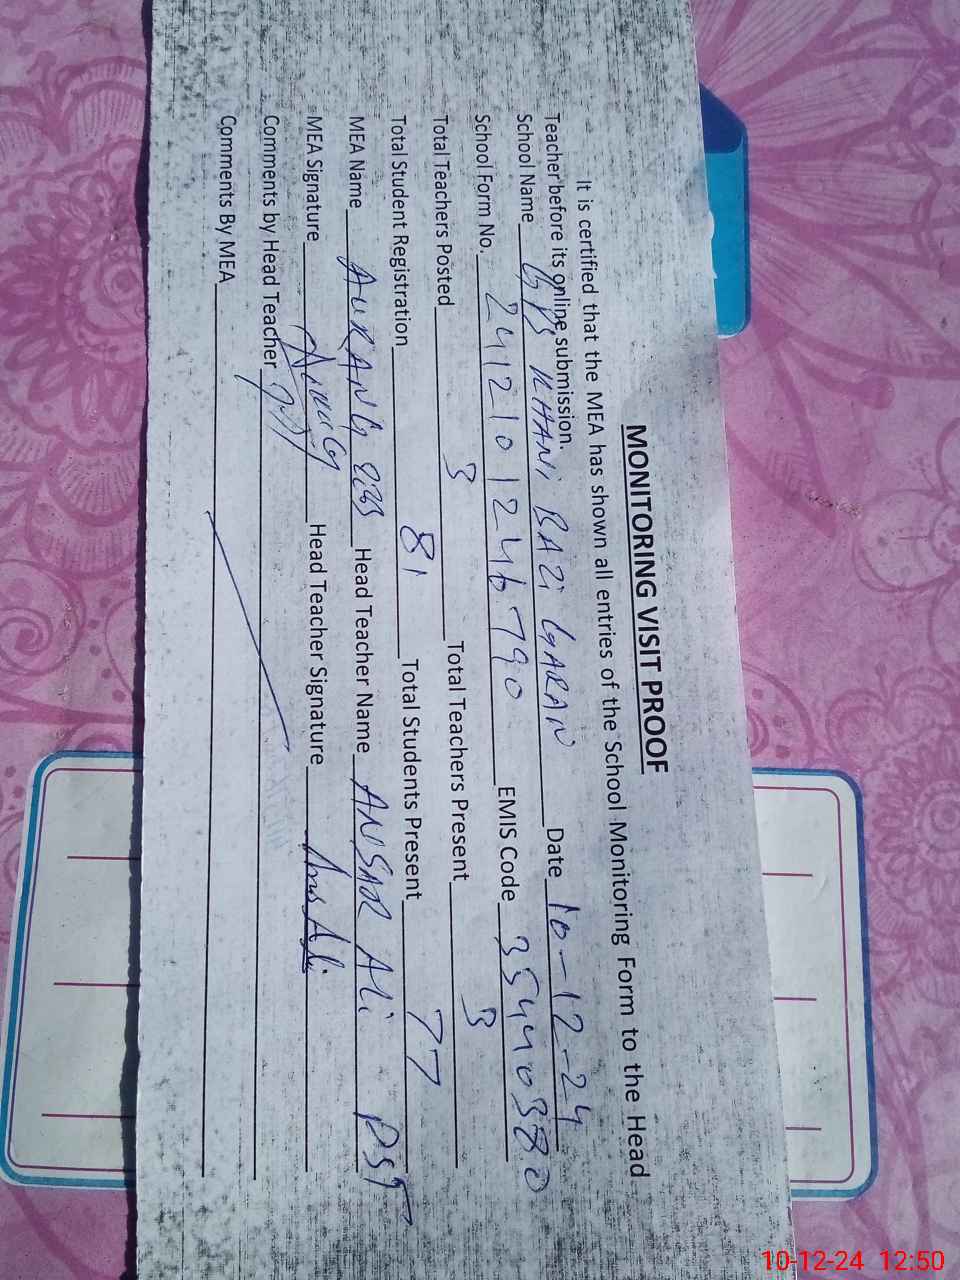 MONITORING VISIT PROOF
It is certified that the MEA has shown all entries of the School Monitoring Form to the Head
Teacher before its online submission.
School Name GPS KHANI BAZI GARAN Date 10-12-24
School Form No. 2412101246790 EMIS Code 35440380
Total Teachers Posted 3 Total Teachers Present 3
Total Student Registration 81 Total Students Present 77
MEA Name AURANG Head Teacher Name ANSAR ALI PST
MEA Signature Head Teacher Signature
Comments by Head Teacher
Comments By MEA
10-12-24 12:50